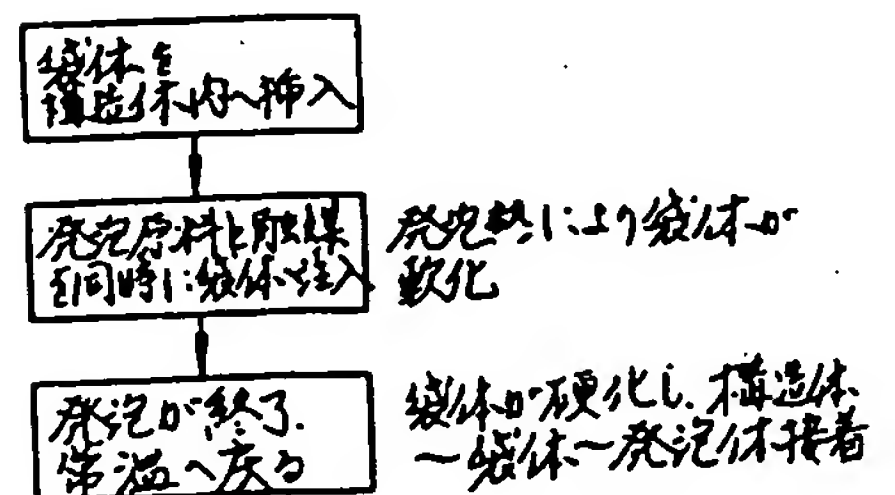 袋体を
構造体内へ挿入
発泡原料と触媒
を同時に袋体へ注入
発泡熱により袋体が
軟化
発泡が終了.
常温へ戻る
袋体が硬化し、構造体
〜袋体〜発泡体接着